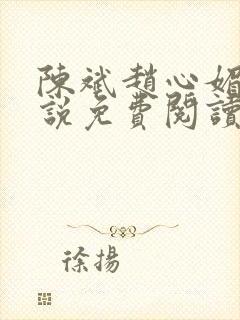 陳斌趙心媚
說免費閱讀
徐揚